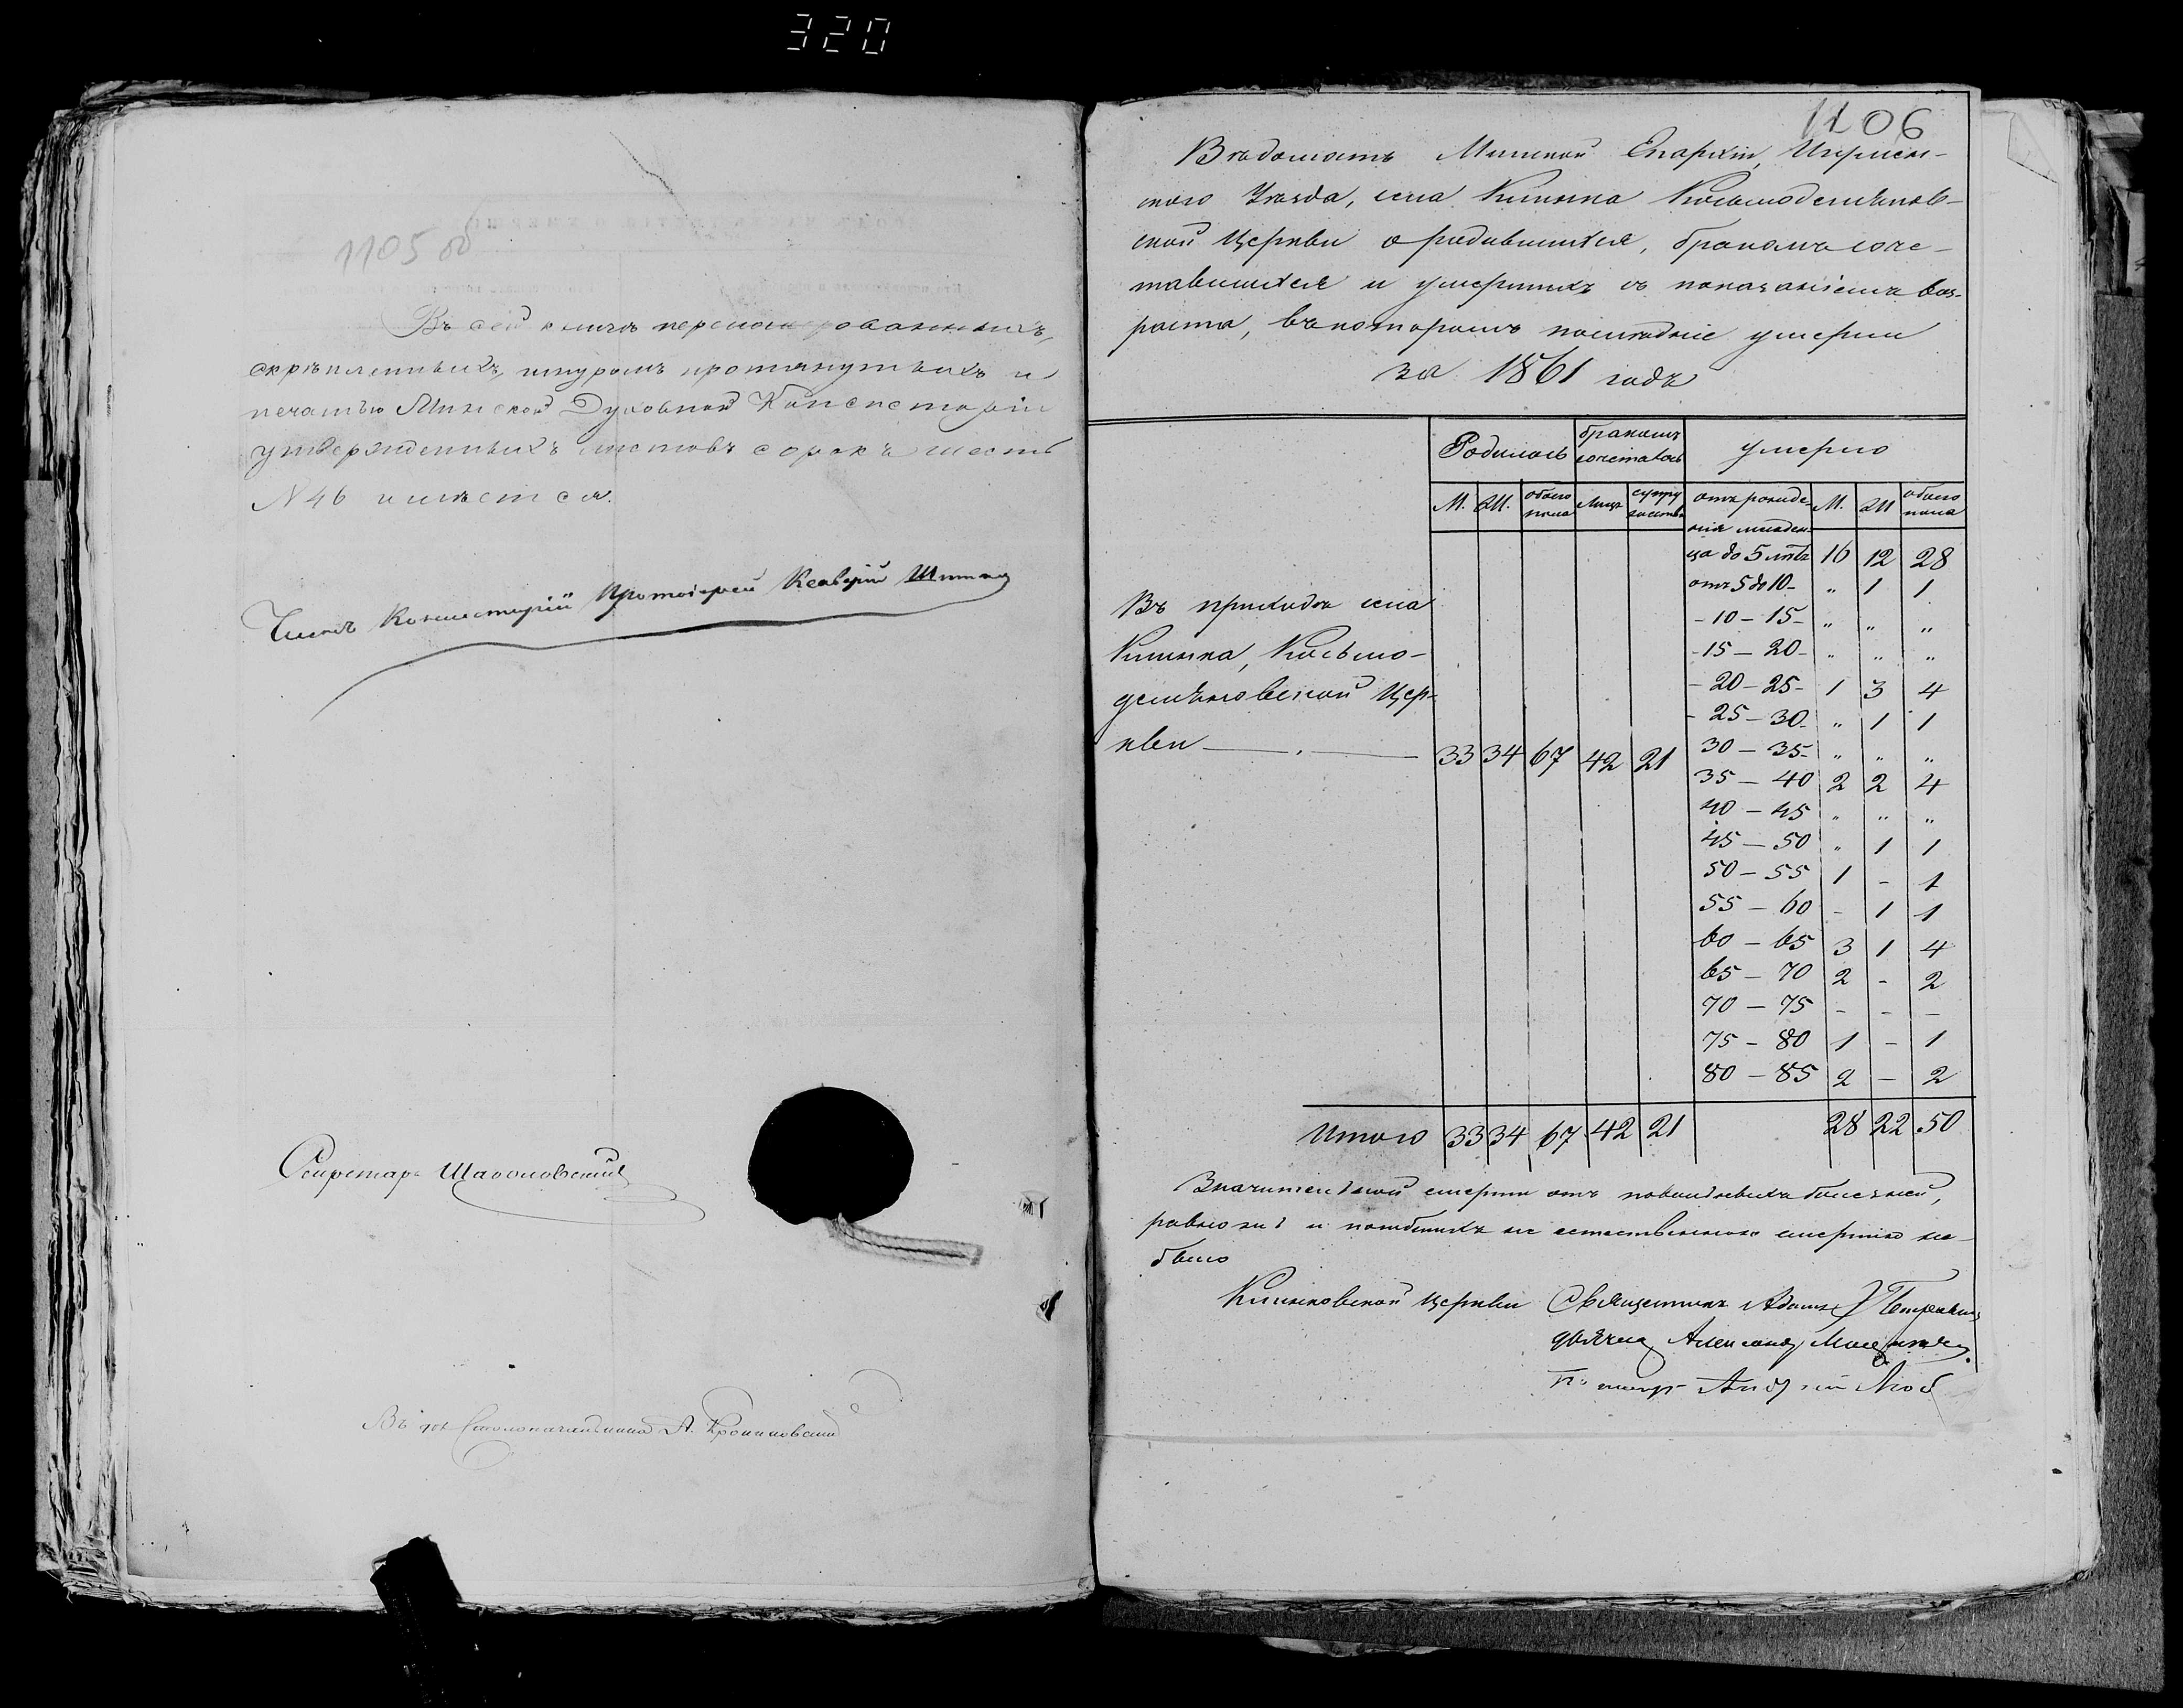 320
1105 об
Въ сей книгѣ перемаркированныхъ,
скрѣпленныхъ, шнуромъ протянутыхъ и
печатью Минской Духовной Консисторіи
утвержденныхъ листовъ сорокъ шесть
N 46 имѣется.
Членъ Консисторіи Протоіерей Ксаверій
Секретарь
Въ дол. Столоначальника А.
1106
Вѣдомость Минской Епархіи, Игумен-
скаго Уѣзда, села Клинка Косьмодеміянов-
ской Церкви о родившихся, бракомъ соче-
тавшихся и умершихъ съ показаніемъ воз-
раста, въ которомъ послѣдніе умерли
за 1861 годъ
Родилось бракомъ сочеталось умерло
М. Ж. обоего пола Лицъ супружествъ отъ рожде- М. Ж обоего пола
нія младен-
ца до 5 лѣтъ 16 12 28
отъ 5 до 10 - „ 1 1
- 10 - 15 - „ „ „
- 15 - 20 - „ „ „
- 20 - 25 - 1 3 4
- 25 - 30 - „ 1 1
30 - 35 - „ „ „
35 - 40 2 2 4
40 - 45 „ „ „
45 - 50 „ 1 1
50 - 55 1 - 1
55 - 60 - 1 1
60 - 65 3 1 4
65 - 70 2 - 2
70 - 75 - - -
75 - 80 1 - 1
80 - 85 2 - 2
Въ приходѣ села
Клинка, Косьмо-
деміяновской Цер-
кви 33 34 67 42 21
Итого 33 34 67 42 21 28 22 50
Значительной смерти отъ повальныхъ болезней,
равно и погибшихъ не естественною смертію не
было
Клинковской Церкви Священникъ Адамъ
дьячекъ Александръ
Андрей